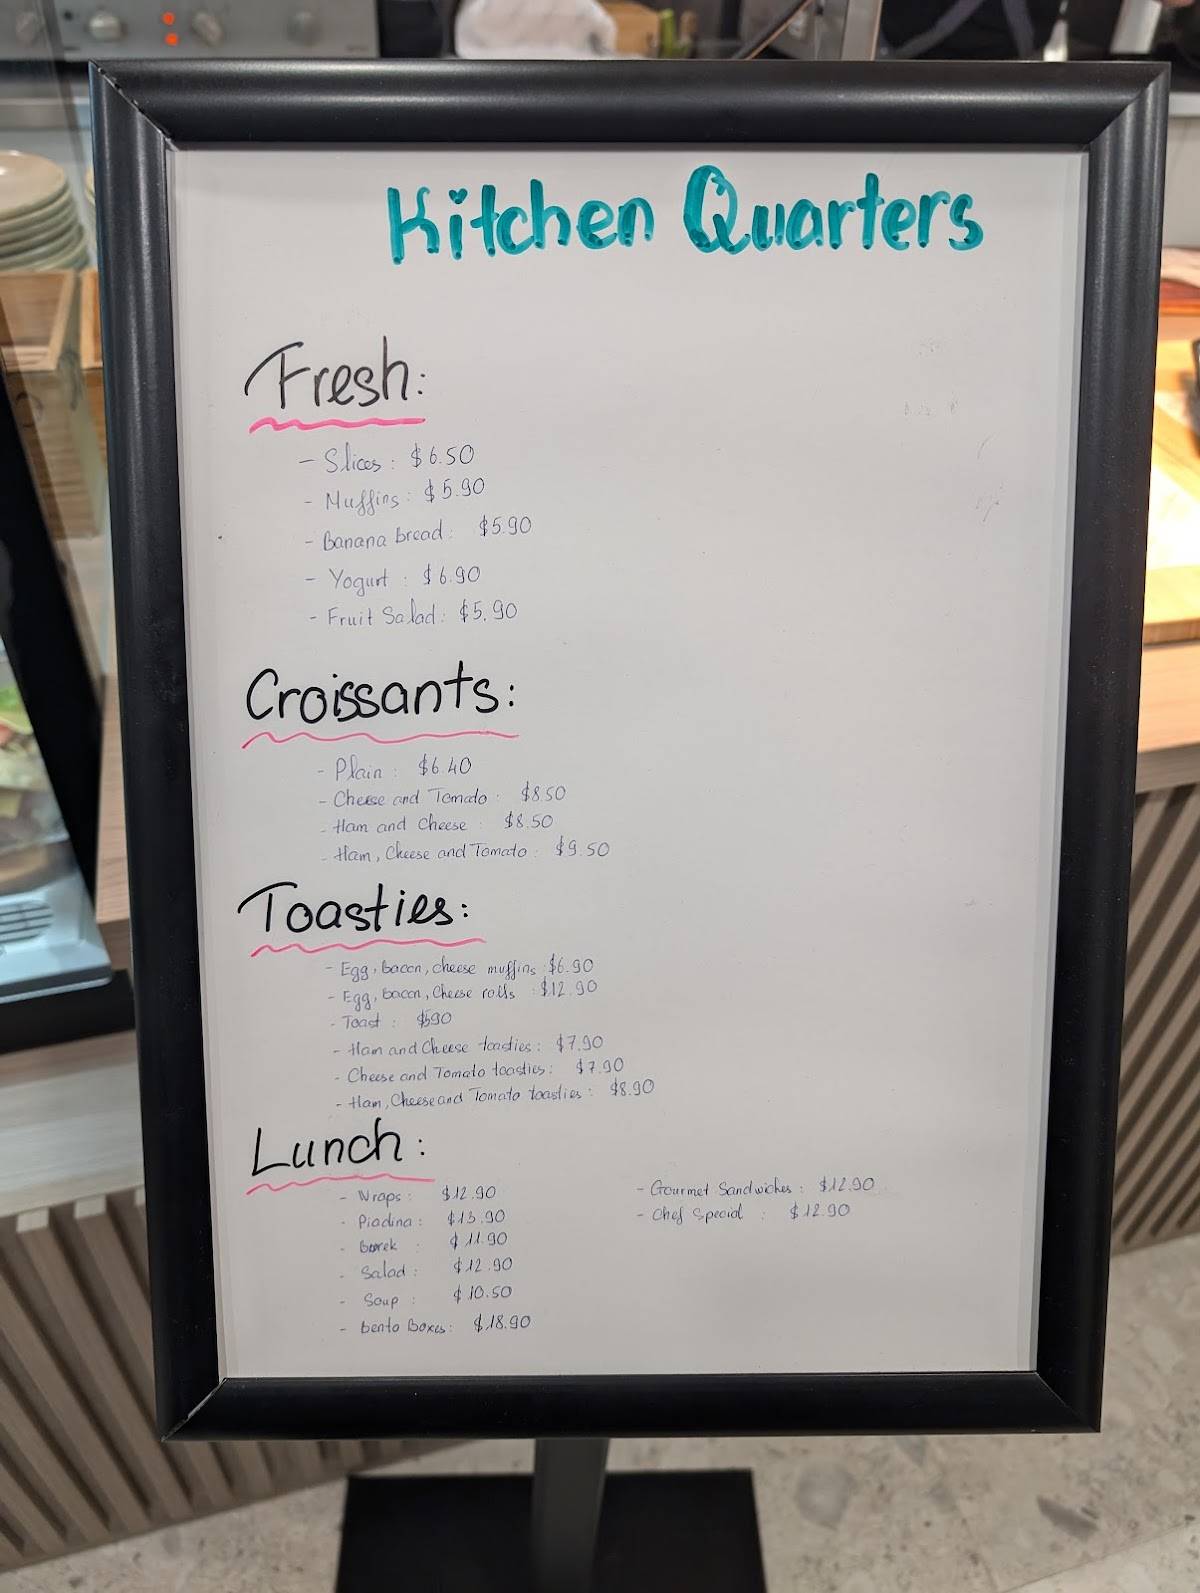 Kitchen Quarters
Fresh:
- Slices: $6.50
- Muffins: $5.90
- Banana bread: $5.90
- Yogurt: $6.90
- Fruit Salad: $5.90
Croissants:
- Plain: $6.40
- Cheese and Tomato: $8.50
- Ham and Cheese: $8.50
- Ham, Cheese and Tomato: $9.50
Toasties:
- Egg, bacon, cheese muffins: $6.90
- Egg, bacon, Cheese rolls: $12.90
- Toast: $5.90
- Ham and Cheese toasties: $7.90
- Cheese and Tomato toasties: $7.90
- Ham, Cheese and Tomato toasties: $8.90
Lunch:
- Wraps: $12.90
- Piadina: $13.90
- Borek: $11.90
- Salad: $12.90
- Soup: $10.50
- Bento Boxes: $18.90
- Gourmet Sandwiches: $12.90
- Chef Special: $12.90